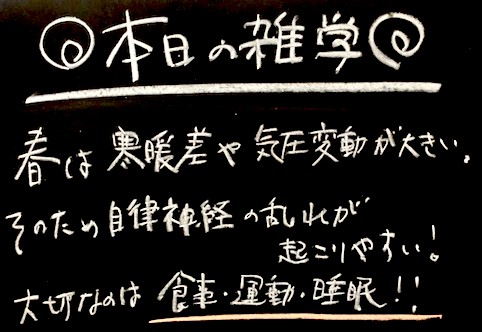 本日の雑学
春は寒暖差や気圧変動が大きい。
そのため自律神経の乱れが
起こりやすい!
大切なのは食事・運動・睡眠!!